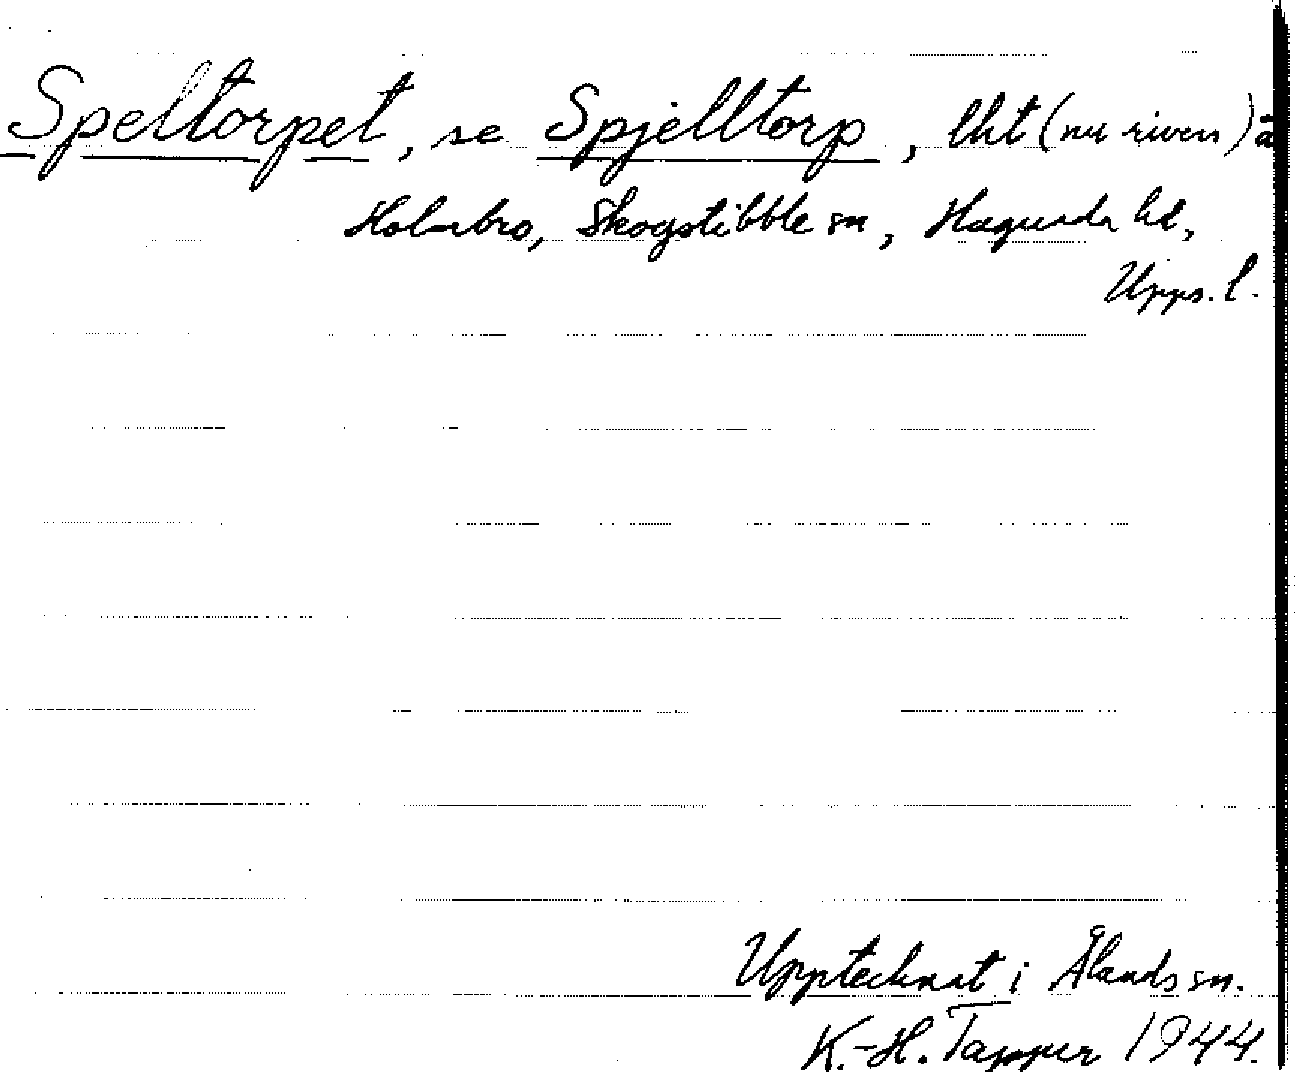 Speltorpet, se Spjelltorp, lht (nu riven) å
Holmbro, Skogstibble sn, Hagunda hd,
Upps. l.
Upptecknat i Ålands sn.
K.-H. Tapper 1944.